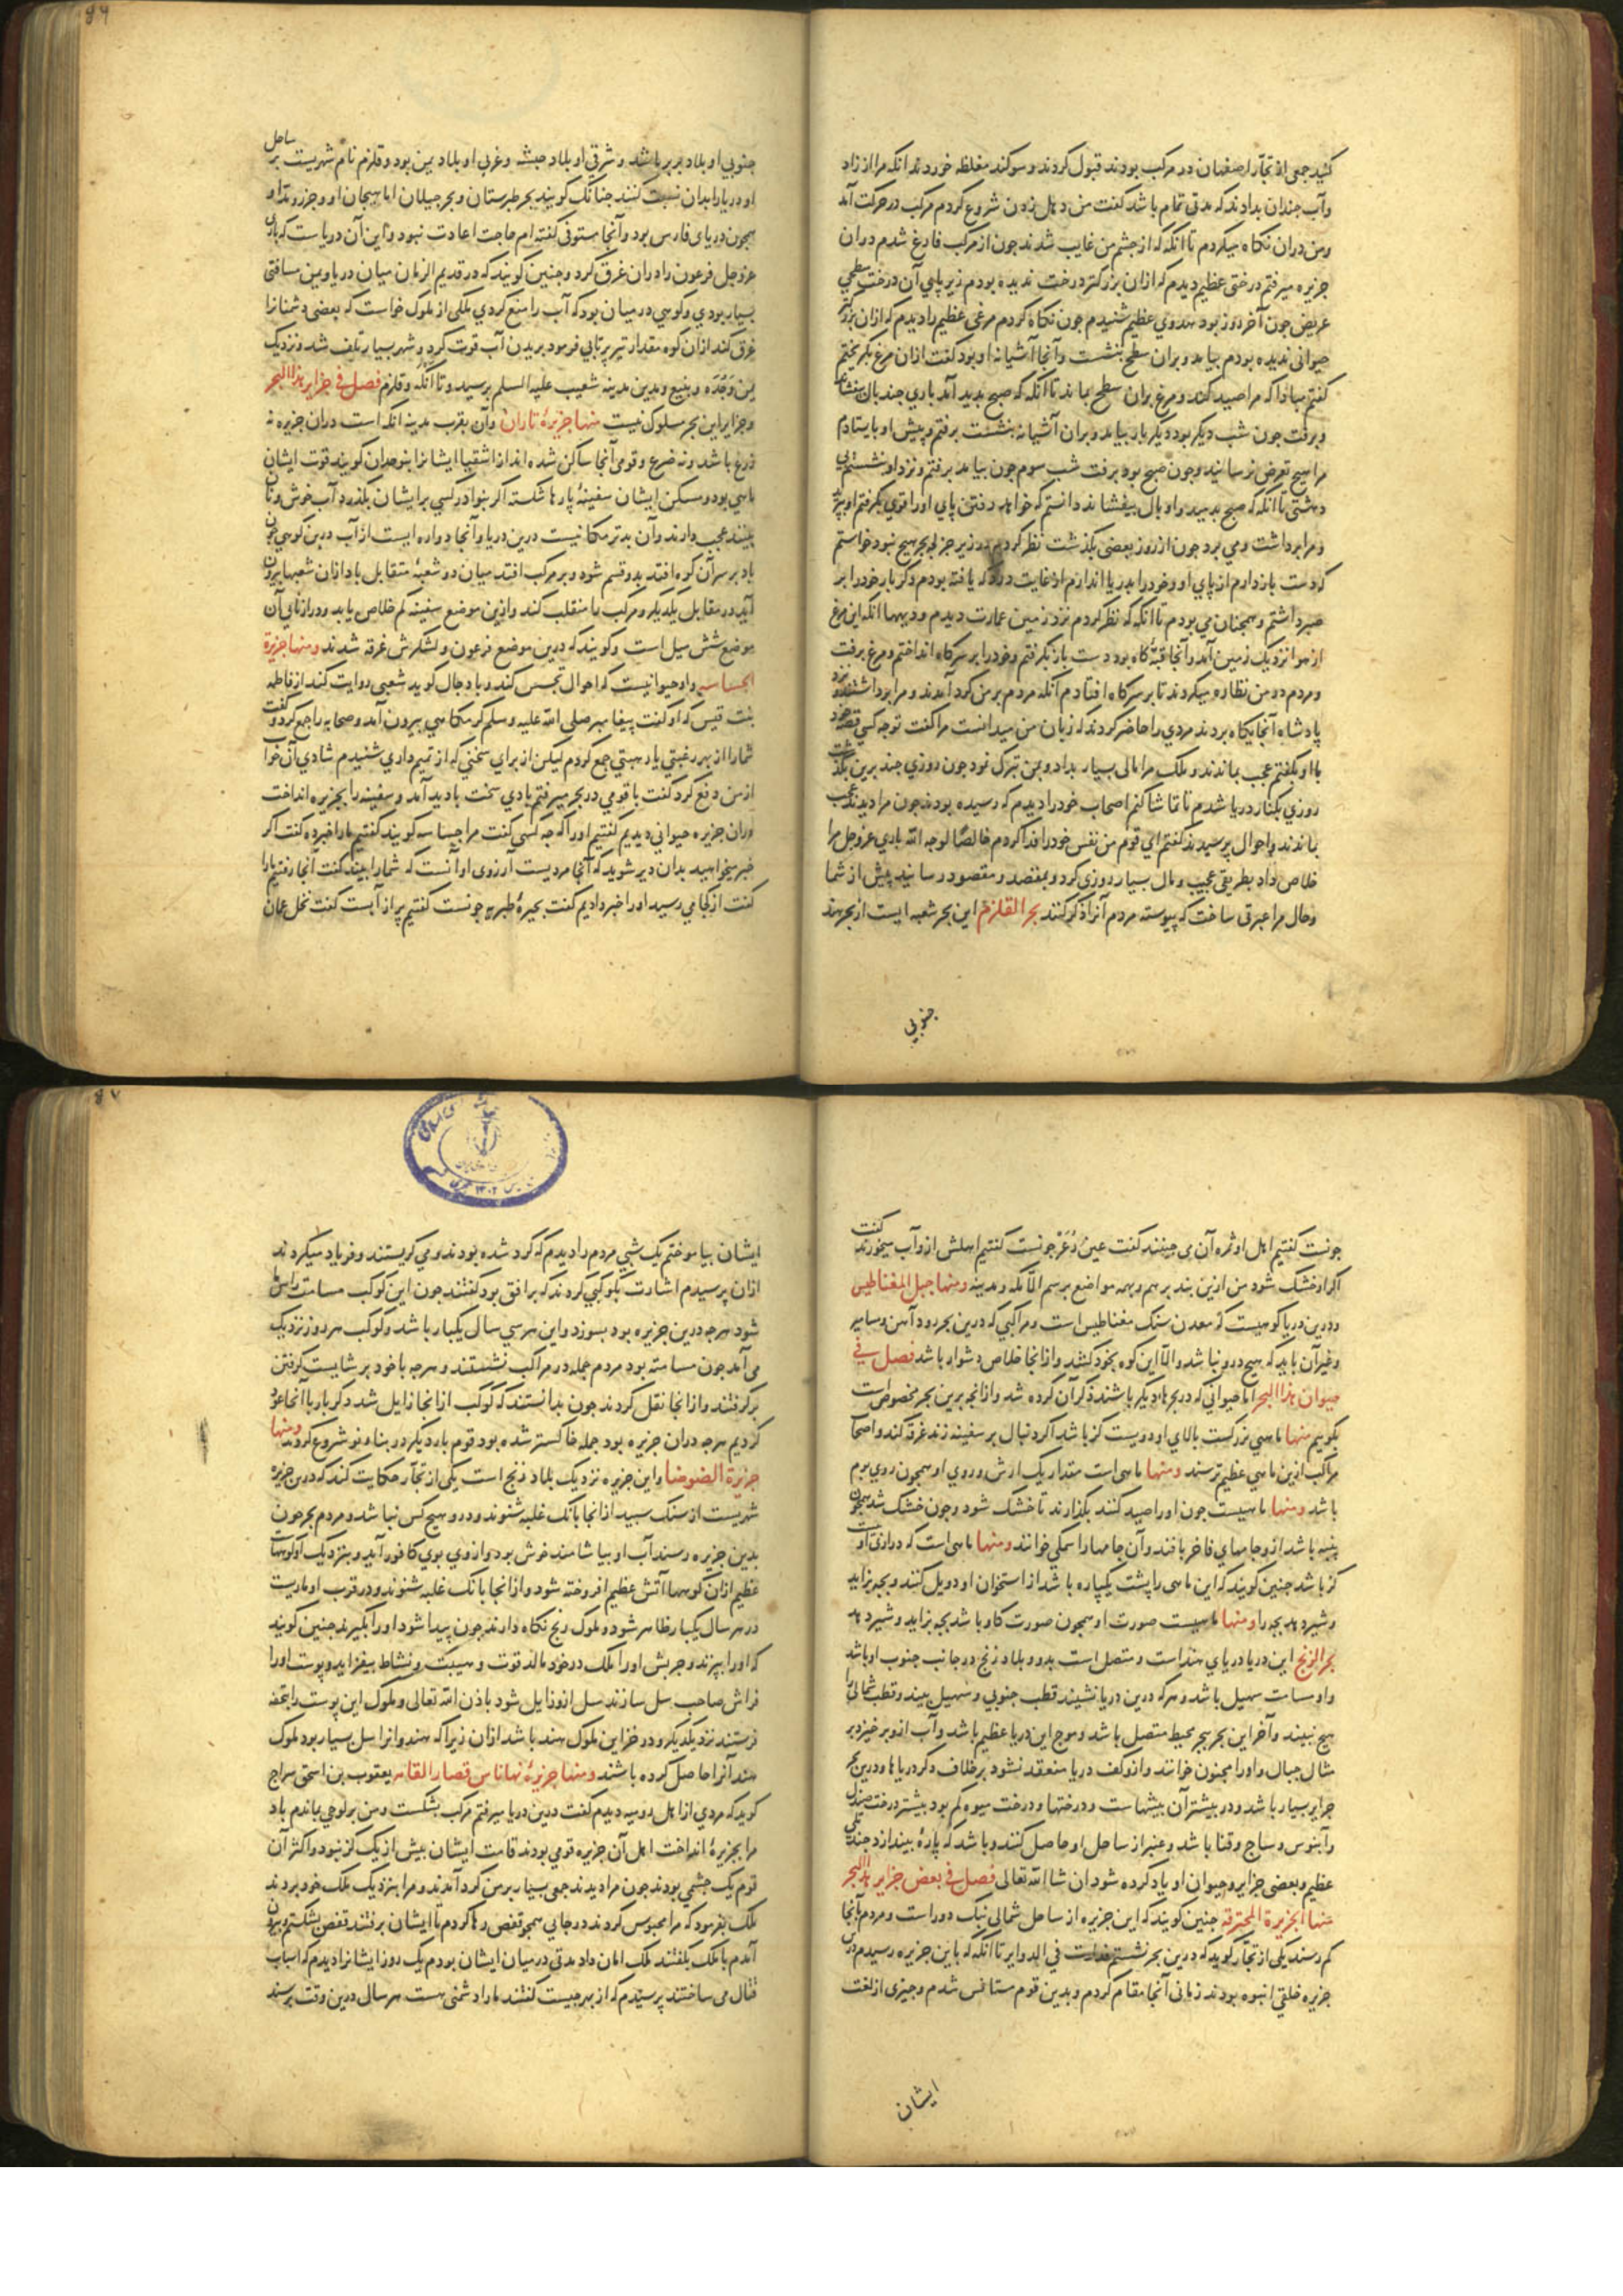 کشید جمعی از تجار اصفهان در مرکب بودند قبول کردند و سوکند مغلظه خوردند آنکه مرا از زاد
و آب چندان بدادند که مدتی تمام باشد کفت من دهل زدن شروع کردم مرکب در حرکت آمد
و من دران نکاه میکردم تا آنکه که از چشم من غایب شدند چون از مرکب فارغ شدم دران
جزیره میرفتم درختی عظیم دیدم که ازان بزرکتر درخت ندیده بودم زیر پای آن درخت سطحی
عریض چون آخر روز بود هدوی عظیم شنیدم چون نکاه کردم مرغی عظیم را دیدم که ازان بزرکتر
حیوانی ندیده بودم بیامد و بران سطح بنشست و آنجا آشیانه او بود کفت ازان مرغ بکریختم
کفتم مبادا که مرا صید کند و مرغ بران سطح بماند تا آنکه که صبح بدید آمد باری چند بال بیفشاند
و برفت چون شب دیکر بود دیکر بار بیامد و بران آشیانه بنشست برفتم و پیش او بایستادم
مرا هیچ تعرض نرسانید و چون صبح بود برفت شب سوم چون بیامد برفتم و نزد او نشستم بی
دهشتی تا آنکه که صبح بدمید و او بال بیفشاند دانستم که خواهد رفتن پای او را قوی بکرفتم او بپرید
و مرا برداشت و می برد چون از روز بعضی بکذشت نظر کردم در زیر جز لجه بحر هیچ نبود خواستم
که دست باز دارم از پای او و خود را بدریا اندازم از غایت درد که یافته بودم دکر بار خود را بر
صبر داشتم و همچنان می بودم تا آنکه که نظر کردم نزد زمین عمارت دیدم و دیهها آنکه این مرغ
از هوا نزدیک زمین آمد و آنجا قبه کاه بود دست باز بکرفتم و خود را بر سر کاه انداختم و مرغ برفت
و مردم در من نظاره میکردند تا بر سر کاه افتادم آنکه مردم بر من کرد آمدند و مرا برداشتند و نزد
پادشاه آنجایکاه بردند مردی را حاضر کردند که زبان من میدانست مرا کفت تو چه کسی قصه خود
با او بکفتم عجب بماندند و ملک مرا مالی بسیار بداد و بمن تبرک نمود چون روزی چند برین بکذشت
روزی بکنار دریا شدم تا تماشا کنم اصحاب خود را دیدم که رسیده بودند چون مرا دیدند عجب
بماندند و احوال پرسیدند کفتم ای قوم من نفس خود را فدا کردم خالصًا لوجه الله باری عز و جل مرا
خلاص داد بطریقی عجیب و مال بسیار روزی کرد و بمقصد و مقصود رسانید پیش از شما
و حال مرا عبرتی ساخت که پیوسته مردم آنرا ذکر کنند بحر القلزم این بحر شعبه ایست از بحر هند
جنوبی
۸۶
جنوبی او بلاد بربر باشد و شرقی او بلاد حبشه و غربی او بلاد یمن بود و قلزم نام شهریست بر ساحل
او دریا را بدان نسبت کنند چنانک کویند بحر طبرستان و بحر جیلان اما هیجان او و جزر و مد او
همچون دریای فارس بود و آنجا مستوفی کفته ام حاجت اعادت نبود و این آن دریاست که باری
عز و جل فرعون را دران غرق کرد و چنین کویند که در قدیم الزمان میان دریا و یمن مسافتی
بسیار بودی و کوهی در میان بود که آب را منع کردی ملکی از ملوک خواست که بعضی دشمنانرا
غرق کند ازان کوه مقدار تیر پرتابی فرمود بریدن آب قوت کرد و شهر بسیار تلف شد و نزدیک
یمن و جده و ینبع و مدین مدینه شعیب علیه السلم برسید و تا آنکه و قلزم فصل فی جزایر هذا البحر
و جزایر این بحر مسلوک نیست منها جزیرهٔ تاران و آن بقرب مدینه انکه است دران جزیره نه
زرع باشد و نه ضرع و قومی آنجا ساکن شده اند از اشقیا ایشانرا بنو حدان کویند قوت ایشان
ماهی بود و مسکن ایشان سفینهٔ پارها شکسته اکر بنوادر کسی بر ایشان بکذرد آب خوش و نان
بینند عجب دارند و آن بدتر مکانیست درین دریا و آنجا دواره ایست از آب درین کوهی چون
باد بر سر آن کوه افتد بدو قسم شود و بر مرکب افتد میان دو شعبهٔ متقابل باد ازان شعبها بیرون
آید در مقابل یکدیکر و مرکب را منقلب کند و ازین موضع سفینه کم خلاص یابد و درازنای آن
موضع شش میل است و کویند که درین موضع فرعون و لشکرش غرقه شدند ومنها جزیرة
الجساسه و او حیوانیست که احوال تجسس کند و با دجال کوید شعبی روایت کند از فاطمه
بنت قیس که او کفت پیغامبر صلی الله علیه وسلم کرمکاهی بیرون آمد و صحابه راجمع کرد و کفت
شما را از بهر رغبتی یا رهبتی جمع کردم لیکن از برای سخنی که از تمیم داری شنیدم شادی آن خواب
از من دفع کرد کفت با قومی در بحر میرفتم بادی سخت بادید آمد و سفینه را بجزیره انداخت
دران جزیره حیوانی دیدیم کفتیم او را که چه کسی کفت مرا جساسه کویند کفتیم مارا خبر ده کفت اکر
خبر میخواهید بدان دیر شوید که آنجا مردیست آرزوی او آنست که شما را بیند کفت آنجا رفتیم مارا
کفت از کجا می رسید او را خبر دادیم کفت بحیرهٔ طبریه چونست کفتیم پر از آبست کفت نخل عمان
چونست کفتیم اهل او ثمره آن می چینند کفت عین زُغَر چونست کفتیم اهلش ازو آب میخورند کفت
اکر او خشک شود من ازین بند برهم و بهمه مواضع برسم الّا مکه و مدینه ومنها جبل المغناطیس
و درین دریا کوهیست که معدن سنک مغناطیس است و مراکبی که درین بحر رود آهن و مسامیر
و غیر آن باید که هیچ درو نباشد و الّا این کوه بخود کشد و از انجا خلاص دشوار باشد فصل فی
حیوان هذا البحر اما حیوانی که در بحرهاء دیکر باشند ذکر آن کرده شد و از انچه برین بحر مخصوص است
بکوییم منها ماهی بزرکست بالای او دویست کز باشد اکر دنبال بر سفینه زند غرقه کند و اصحاب
مراکب ازین ماهی عظیم ترسند ومنها ماهی است مقدار یک ارش و روی او همچون روی بوم
باشد ومنها ماهیست چون او را صید کنند بکذارند تا خشک شود و چون خشک شد همچون
پنبه باشد ازو جامهای فاخر بافند و آن جامها را سمکی خوانند ومنها ماهی است که درازی او بیست
کز باشد چنین کویند که این ماهی را پشت یکپاره باشد از استخوان او دویل کنند و بچه بزاید
و شیر دهد بچه را ومنها ماهیست صورت او همچون صورت کاو باشد بچه بزاید و شیر دهد
بحر الزنج این دریا دریای هند است و متصل است بدو و بلاد زنج در جانب جنوب او باشد
و او مسامت سهیل باشد و هرکه درین دریا نشیند قطب جنوبی و سهیل بیند و قطب شمالی را
هیچ نبیند و آخر این بحر ببحر محیط متصل باشد و موج این دریا عظیم باشد و آب ازو بر خیزد بر
مثال جبال و او را مجنون خوانند و ازو کف دریا منعقد نشود بر خلاف دکر دریاها و درین بحر
جزایر بسیار باشد و در بیشتر آن بیشهاست و درختها و درخت میوه کم بود بیشتر درخت صندل
و آبنوس و ساج و قنا باشد و عنبر از ساحل او حاصل کنند و باشد که پارهٔ بیندازد چند تلی
عظیم و بعضی جزایر و حیوان او یاد کرده شود ان شا الله تعالی فصل فی بعض جزایر هذا البحر
منها الجزیرة المحترقه چنین کویند که این جزیره از ساحل شمالی نیک دور است و مردم بآنجا
کم رسند یکی از تجار کوید که درین بحر نشستم فدارت فی الدوایر تا آنکه که باین جزیره رسیدم درین
جزیره خلقی انبوه بودند زمانی آنجا مقام کردم و بدین قوم مستانس شدم و چیزی از لغت
ایشان
۸۷
ایشان بیاموختم یک شبی مردم را دیدم که کرد شده بودند و می کریستند و فریاد میکردند
ازان پرسیدم اشارت بکوکبی کردند که بر افق بود کفتند چون این کوکب مسامت راس ما
شود هرچه درین جزیره بود بسوزد و این هر سی سال یکبار باشد و کوکب هر روز نزدیک
می آمد چون مسامته بود مردم جمله در مراکب نشستند و هرچه با خود بر شایست کرفتن
برکرفتند و از انجا نقل کردند چون بدانستند که کوکب از انجا زایل شد دکر بار باآنجا عود
کردیم هرچه دران جزیره بود جمله خاکستر شده بود قوم بار دیکر در بنا نو شروع کردند ومنها
جزیرة الضوضا و این جزیره نزدیک بلاد زنج است یکی از تجار حکایت کند که درین جزیره
شهریست از سنک سپید از انجا بانک غلبه شنوند و درو هیچ کس نباشد و مردم بحر چون
بدین جزیره رسند آب او بیاشامند خوش بود و از وی بوی کافور آید و بنزدیک او کوهها
عظیم ازان کوهها آتش عظیم افروخته شود و از انجا بانک غلبه شنوند و در قرب او ماریست
در هر سال یکبار ظاهر شود و ملوک زنج نکاه دارند چون پیدا شود او را بکیرند چنین کویند
که او را بپزند و چربش او را ملک در خود مالد قوت و هیبت و نشاط بیفزاید و پوست او را
فراش صاحب سل سازند سل ازو زایل شود باذن الله تعالی و ملوک این پوست را بتحفه
فرستند نزد یکدیکر و در خزاین ملوک هند باشد ازان زیرا که هندوانرا سل بسیار بود ملوک
هند آنرا حاصل کرده باشند ومنها جزیرهٔ بها ناس قصار القامه یعقوب بن اسحق سراج
کوید که مردی از اهل رومیه دیدم کفت درین دریا میرفتم مرکب بشکست و من بر لوحی بماندم باد
مرا بجزیرهٔ انداخت اهل آن جزیره قومی بودند قامت ایشان بیش از یک کز نبود و اکثر آن
قوم یک چشمی بودند چون مرا دیدند جمعی بسیار بر من کرد آمدند و مرا بنزدیک ملک خود بردند
ملک بفرمود که مرا محبوس کردند در جایی همچو قفص رها کردم تا ایشان برفتند قفص بشکستم و بیرون
آمدم با ملک بکفتند ملک امان داد مدتی در میان ایشان بودم یک روز ایشانرا دیدم که اسباب
قتال می ساختند پرسیدم که از بهر چیست کفتند ما را دشمنی هست هر سال درین وقت برسند